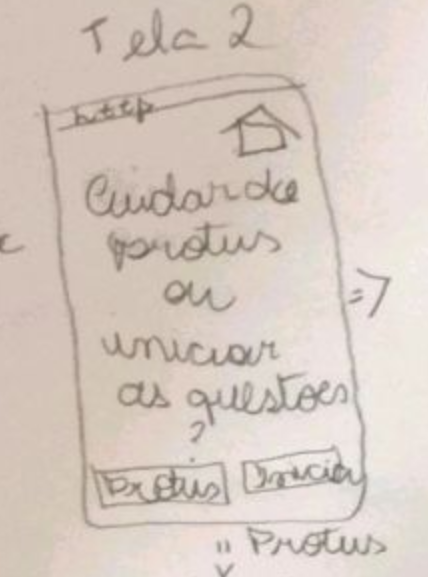 Tela 2
http
Cuidar do
protus
ou
iniciar
as questoes
?
Protus
Iniciar
=>
" Protus